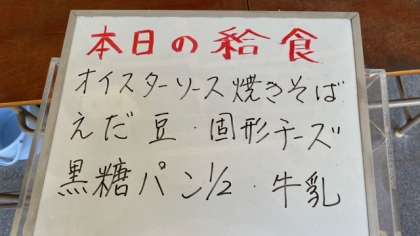 本日の給食
オイスターソース焼きそば
えだ豆・固形チーズ
黒糖パン1/2・牛乳